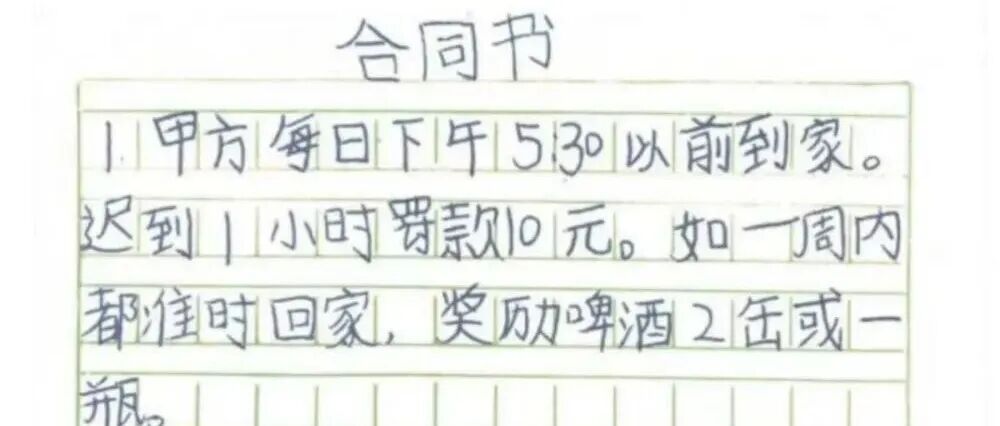 合同书
1.甲方每日下午5:30以前到家。
迟到1小时罚款10元。如一周内
都准时回家,奖励啤酒2缶或一
瓶。